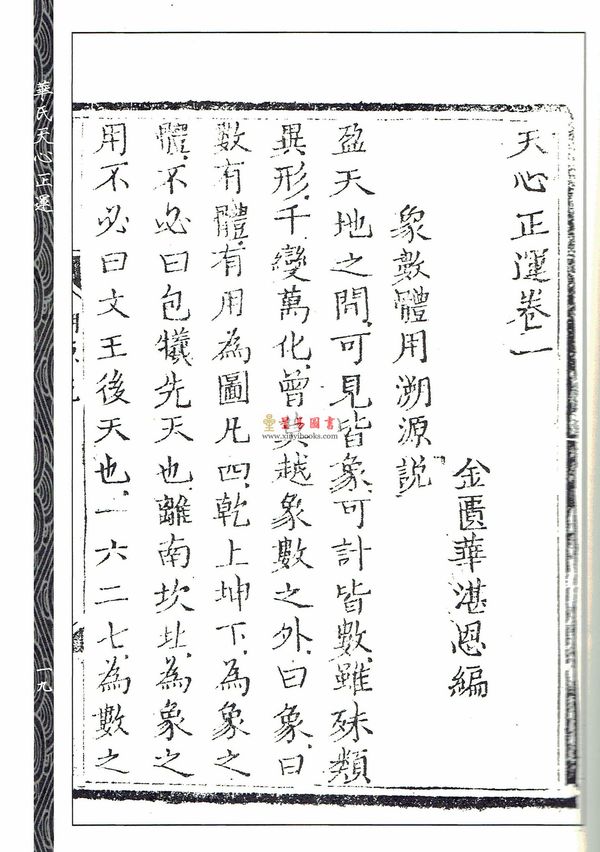 天心正運卷一
金匱華湛恩編
象數體用溯源說
盈天地之間、可見皆象、可計皆數、雖殊類
異形、千變萬化、曾越象數之外、曰象、曰
數有體、有用為圖凡四、乾上坤下、為象之
體、不必曰包犧先天也、離南坎北、為象之
用不必曰文王後天也、一六二七、為數之
華氏天心正運
一九
星易圖書
www.xinyibooks.com